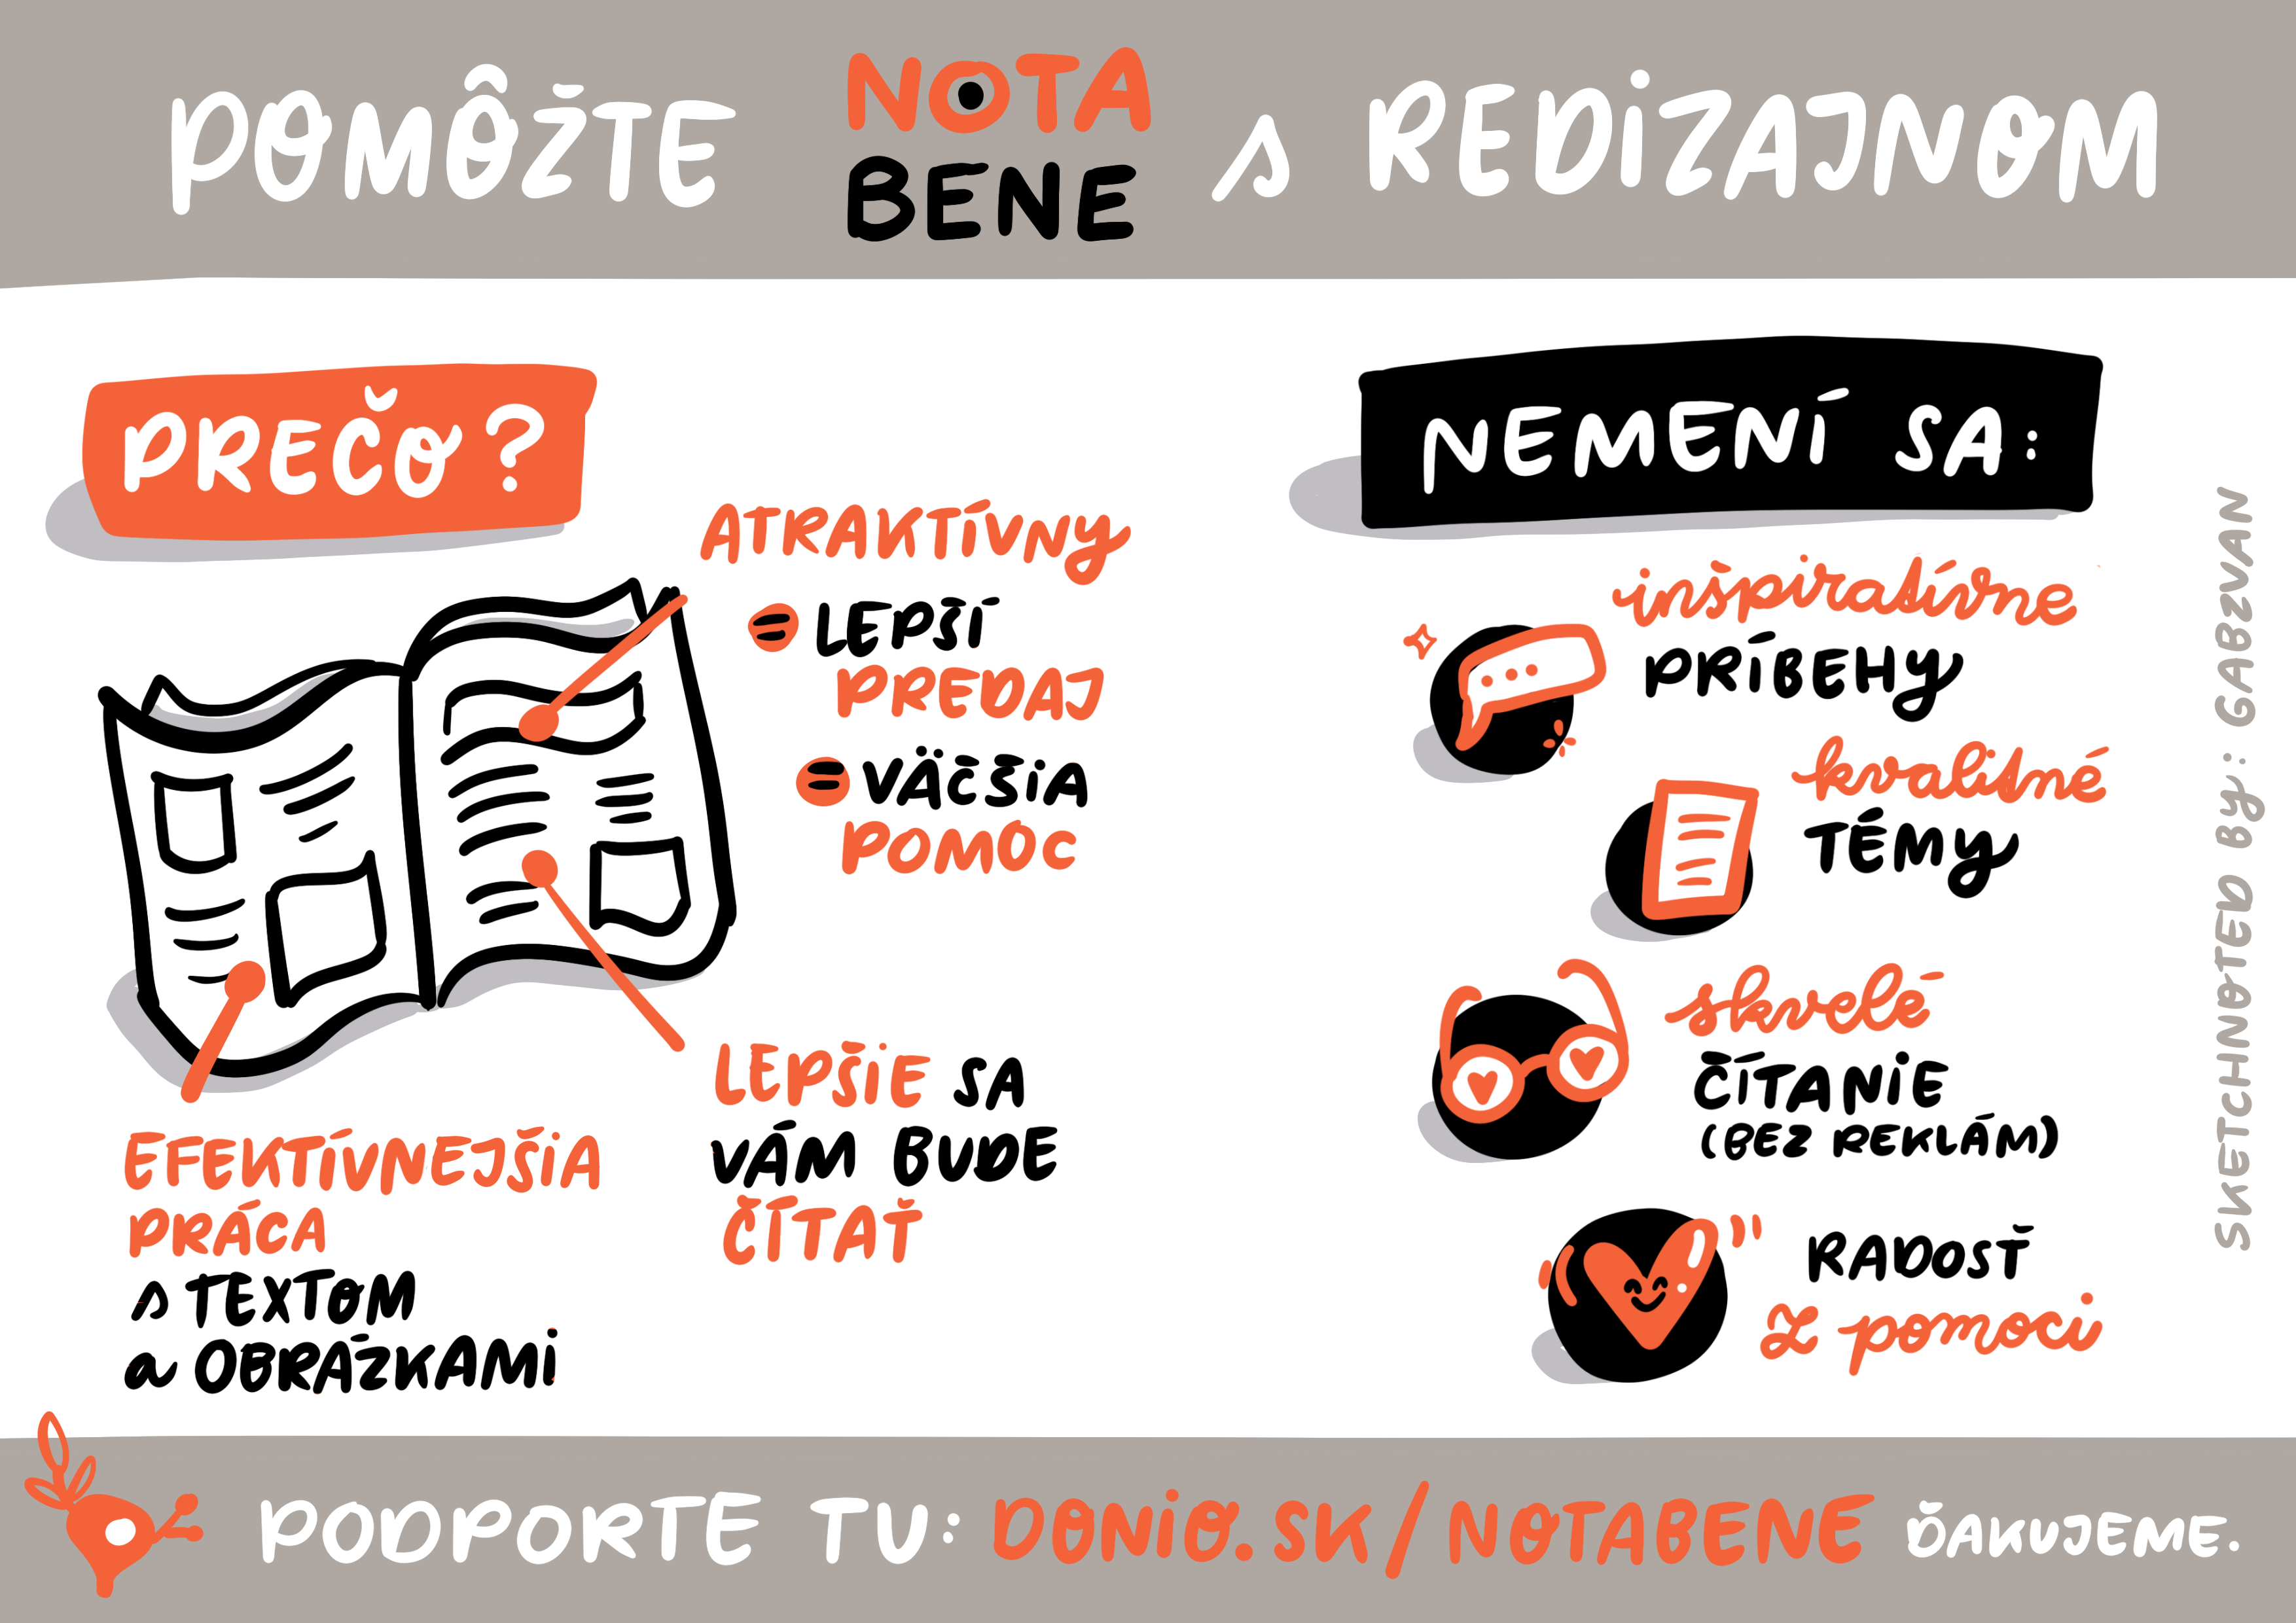 POMÔŽTE NOTA BENE s REDIZAJNOM
PREČO?
ATRAKTÍVNY
= LEPŠÍ
PREDAJ
= VÄČŠIA
POMOC
LEPŠIE SA
VÁM BUDE
ČÍTAŤ
EFEKTÍVNEJŠIA
PRÁCA
s TEXTOM
a OBRÁZKAMI
NEMENÍ SA:
inšpiratívne
PRÍBEHY
kvalitné
TÉMY
skvelé
ČÍTANIE
(BEZ REKLÁM)
RADOSŤ
z pomoci
SKETCHNOTED BY: GABZVAN
PODPORTE TU: DONIO.SK/NOTABENE ĎAKUJEME.